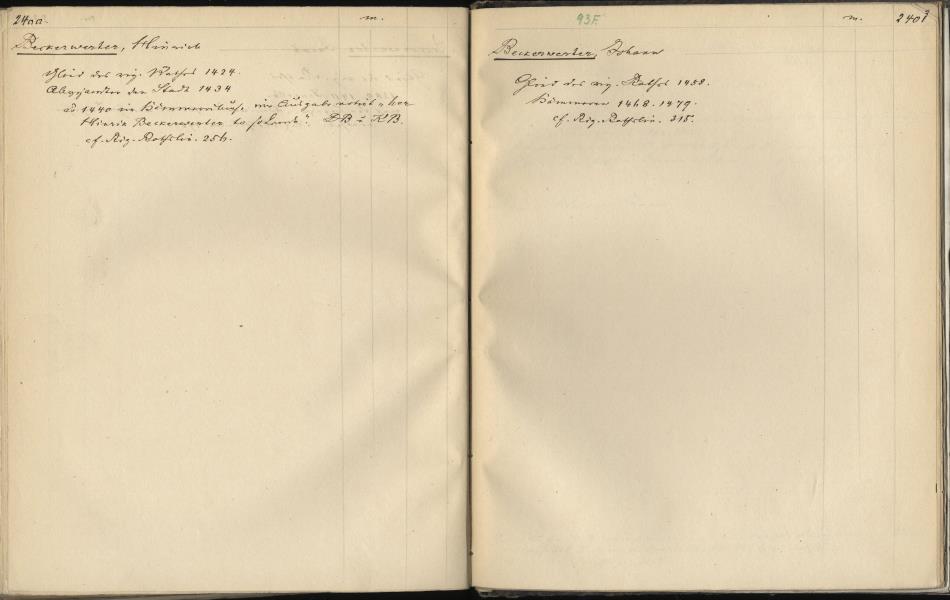 2400.
m.
Beckerwerter, Hinrich
Glied des rig. Rathes 1424.
Abgesandter der Stadt 1434
ao 1440 im Kämmereibuche eine Ausgabe notirt „her
Hinric Beckerwerter to 
cf. Rig. Rathslin. 256.
93 F.
m.
2401
Beckerwerter, Johann
Glied des rig. Rathes 1458.
Kämmerer 1468. 1479.
cf. Rig. Rathslin. 315.